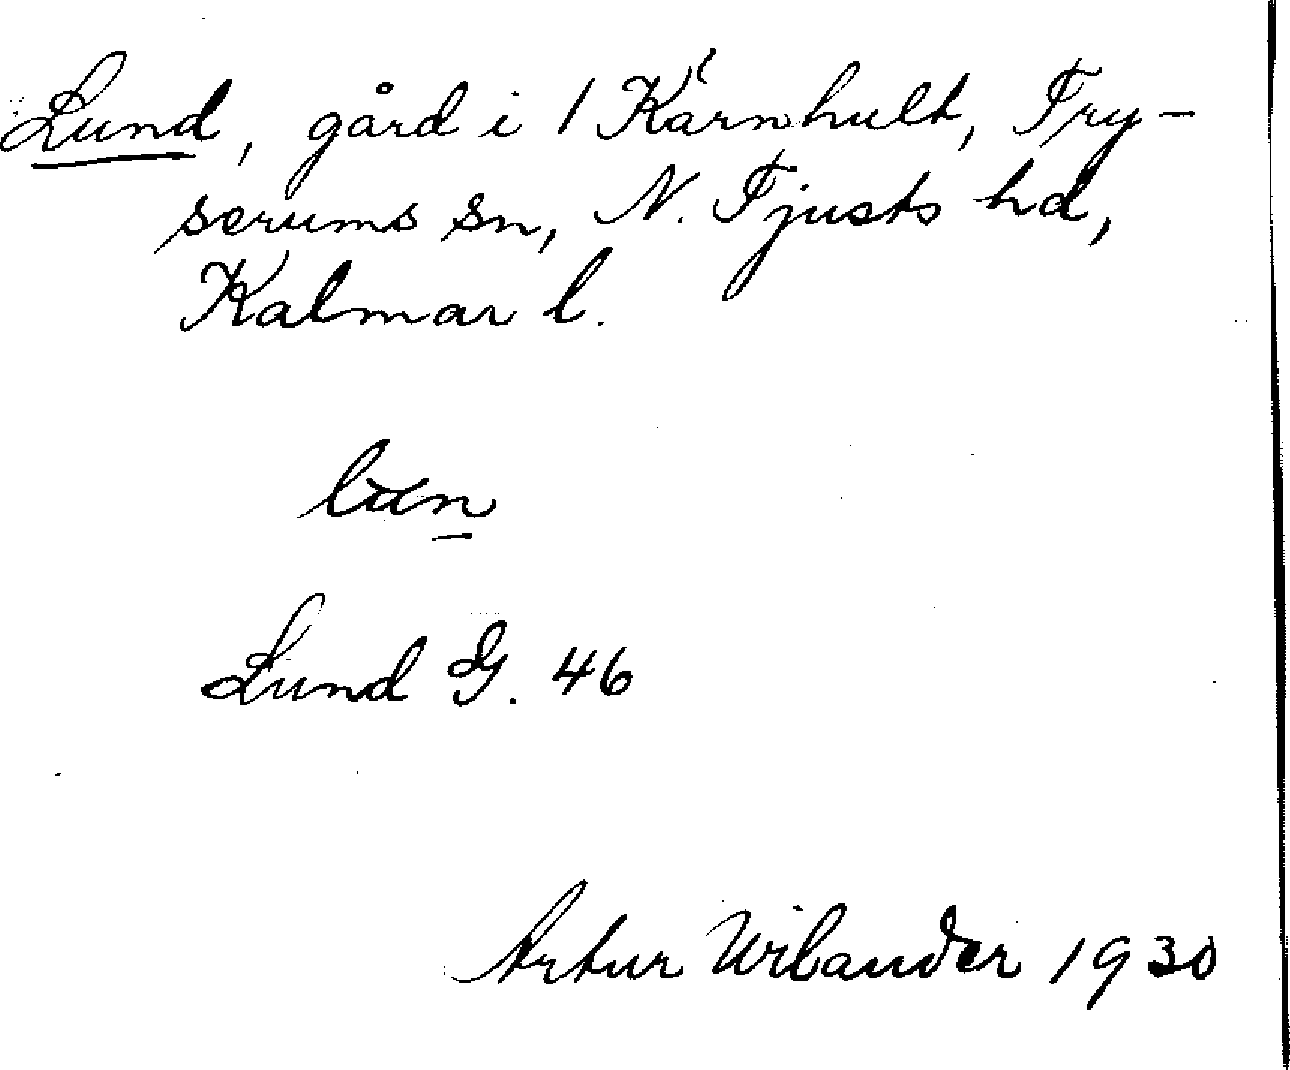 Lund, gård i 1 Kärnhult, Try-
serums sn, N. Tjusts hd,
Kalmar l.
Lund G. 46
Artur Wilander 1930